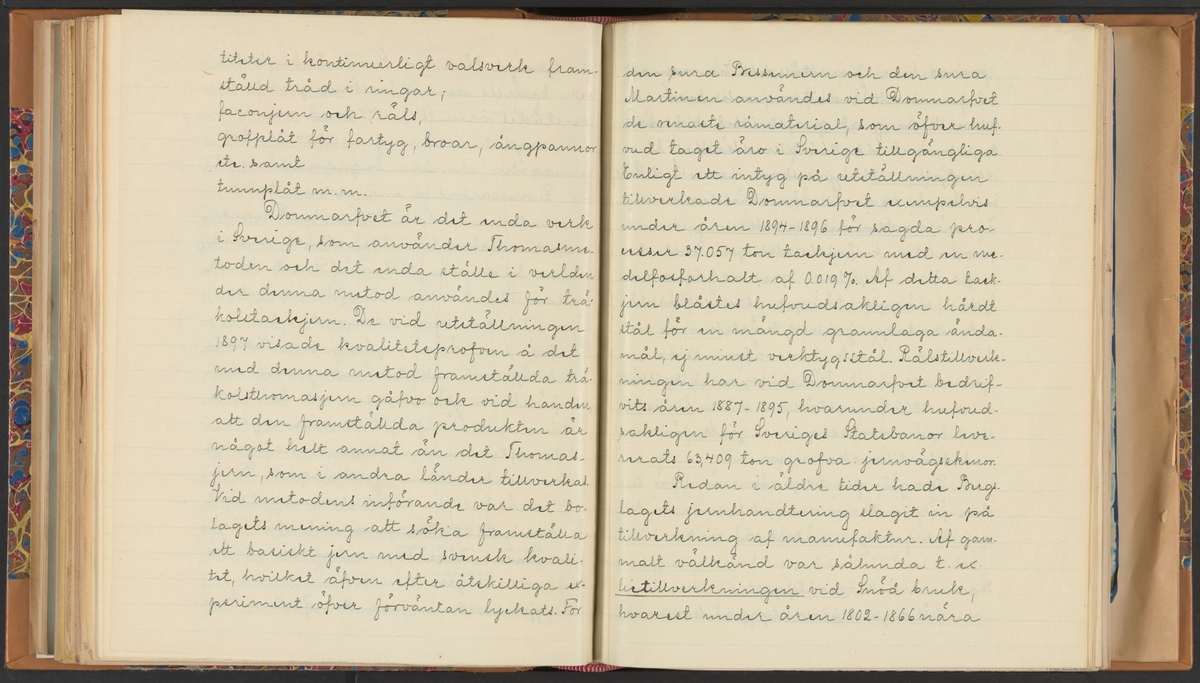 titeter i kontinuerligt valsverk fram-
ställd tråd i ringar;
faconjern och räls,
grofplåt för fartyg, broar, ångpannor
etc. samt
tunnplåt m.m.
Domnarfvet är det enda verk
i Sverige, som använder Thomasme-
toden och det enda ställe i verlden
der denna metod användes för trä-
kolstackjern. De vid utställningen
1897 visade kvalitetsprofven å det
med denna metod framställda trä-
kolsthomasjern gåfvo ock vid handen
att den framställda produkten är
något helt annat än det Thomas-
jern, som i andra länder tillverkas.
Vid metodens införande var det bo-
lagets mening att söka framställa
ett basiskt jern med svensk kvali-
tet, hvilket äfven efter åtskilliga ex-
periment öfver förväntan lyckats. För
den sura Bessemern och den sura
Martinen användes vid Domnarfvet
de renaste råmaterial, som öfver huf-
vud taget äro i Sverige tillgängliga.
Enligt ett intyg på utställningen
tillverkade Domnarfvet exempelvis
under åren 1894-1896 för sagda pro-
cesser 37.057 ton tackjern med en me-
delfosforhalt af 0.019%. Af detta tack-
jern blåstes hufvudsakligen hårdt
stål för en mängd grannlaga ända-
mål, ej minst verktygsstål. Rälstillverk-
ningen har vid Domnarfvet bedrif-
vits åren 1887-1895, hvarunder hufvud-
sakligen för Sveriges Statsbanor leve-
rerats 63,409 ton grofva jernvägsskenor.
Redan i äldre tider hade Bergs-
lagets jernhandtering slagit in på
tillverkning af manufaktur. Af gam-
malt välkänd var sålunda t. ex.
lietillverkningen vid Snöå bruk,
hvarest under åren 1802-1866 nära